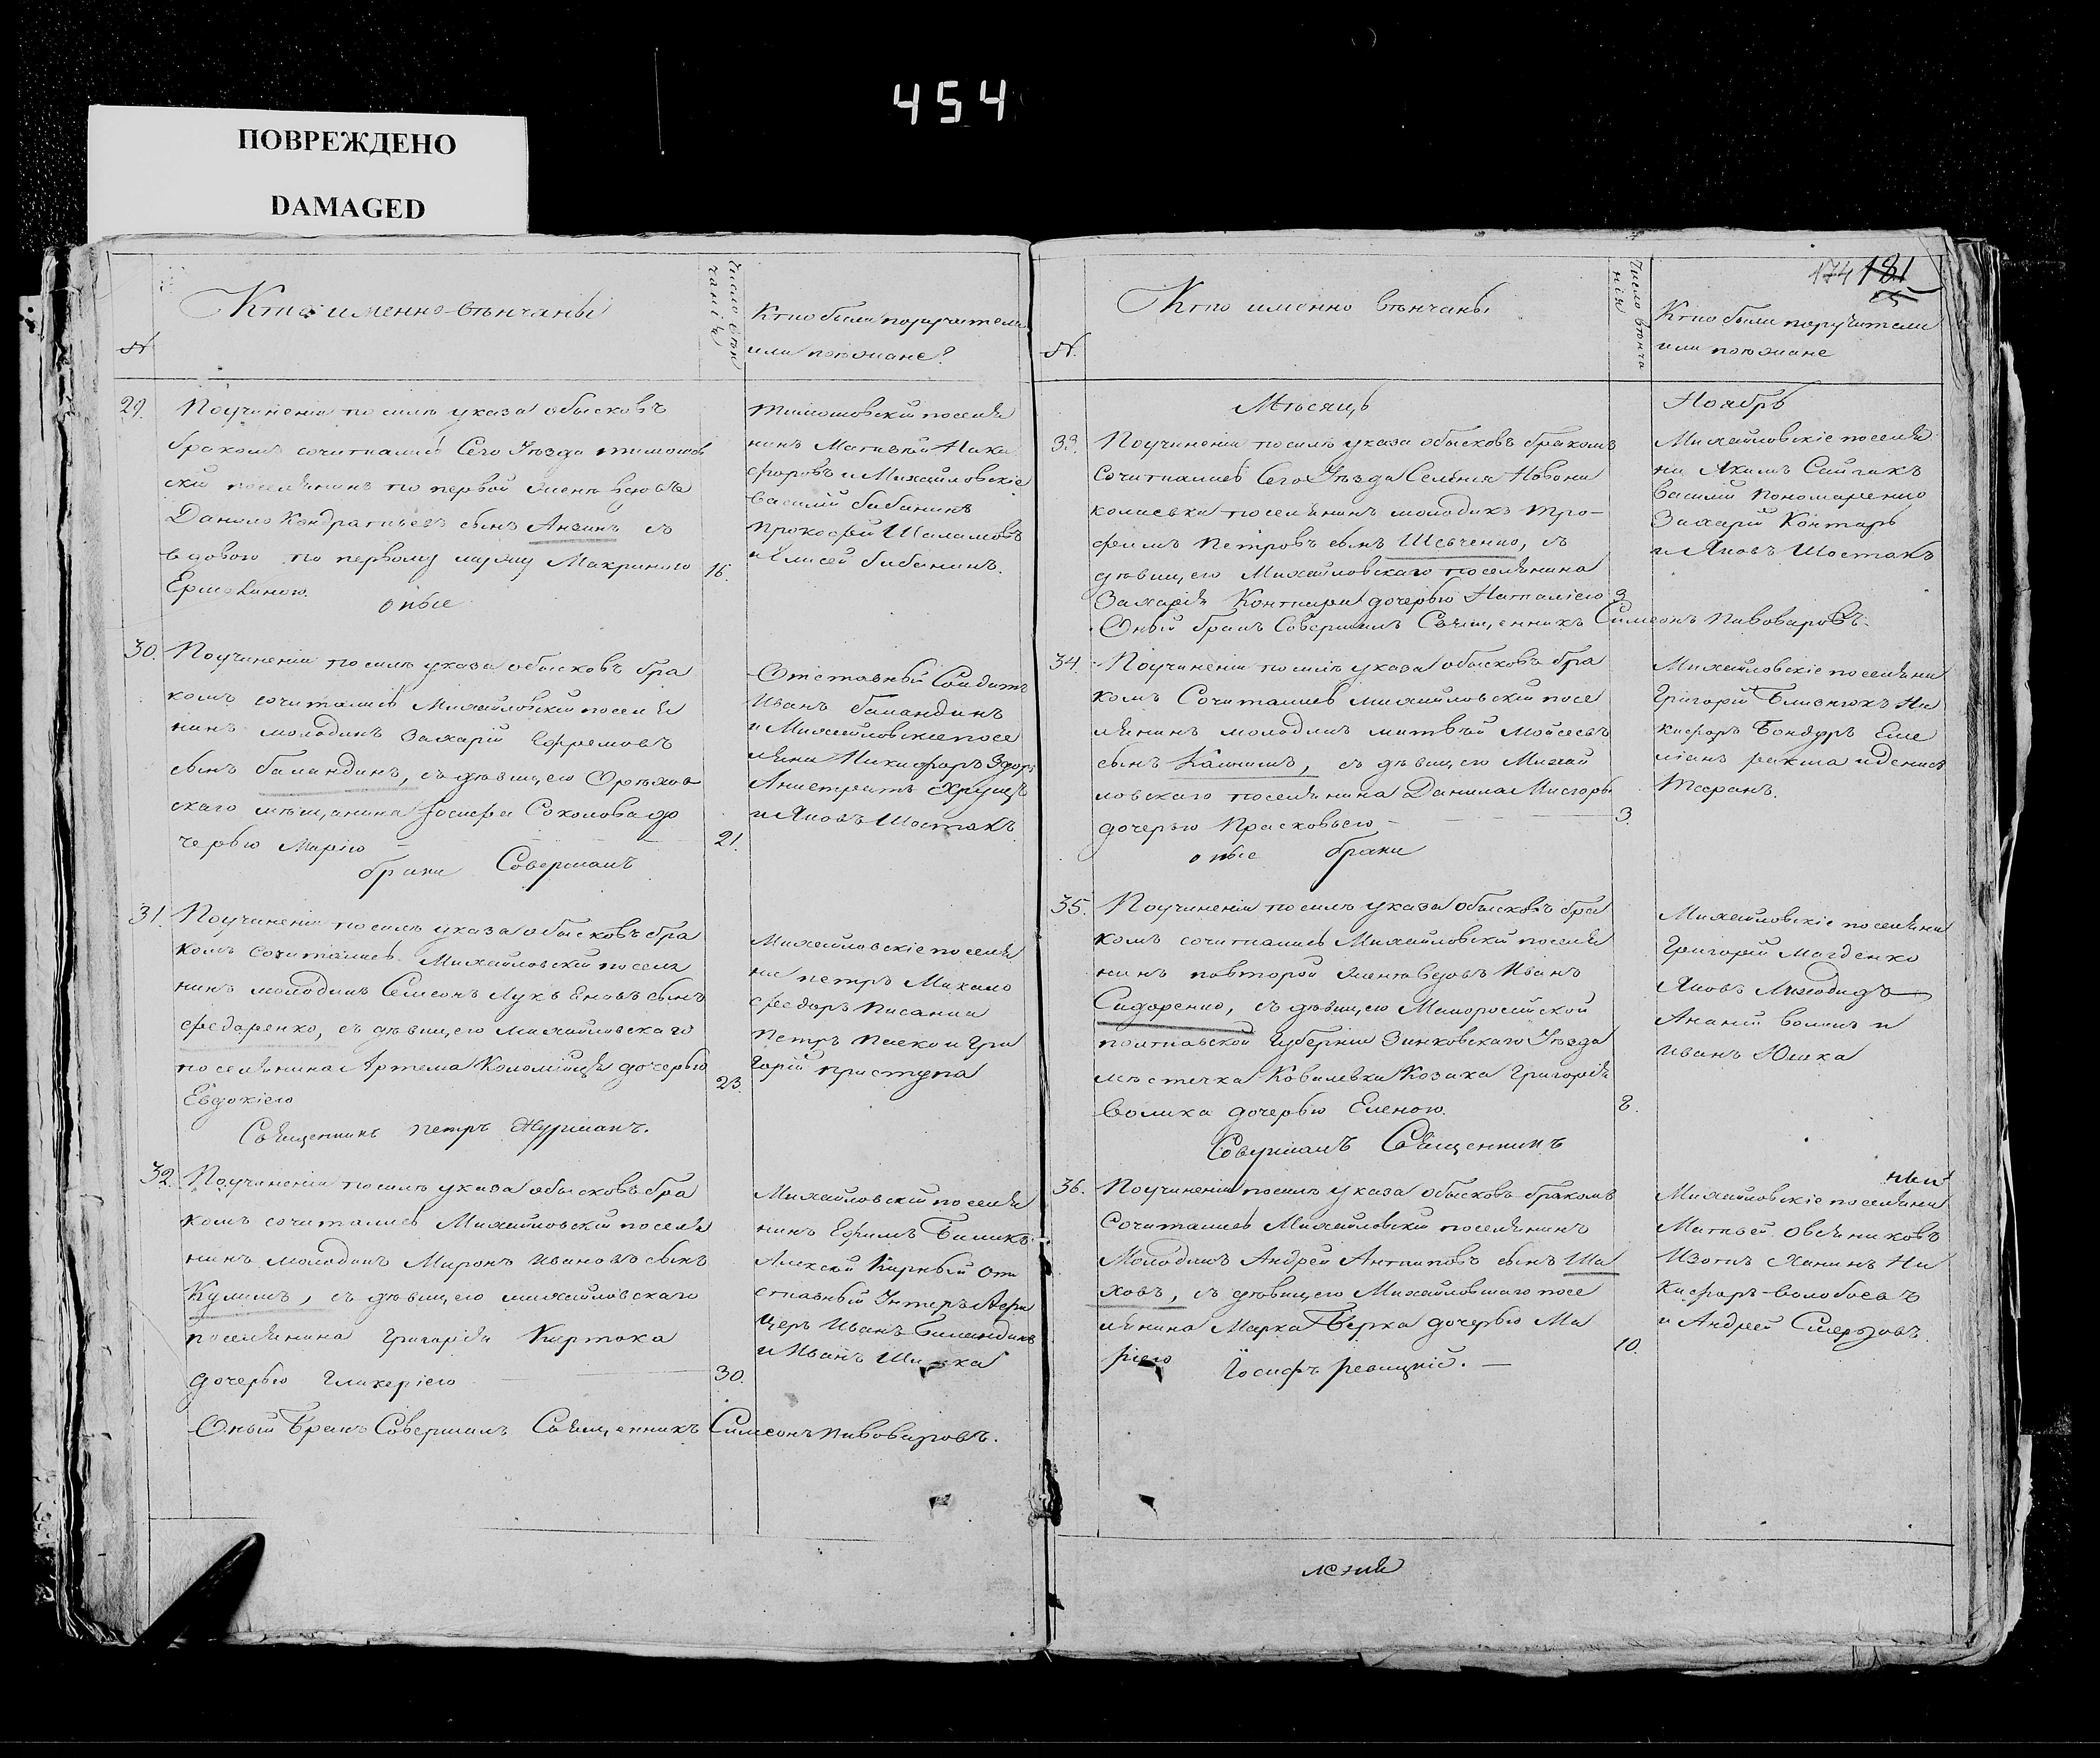 454
ПОВРЕЖДЕНО
DAMAGED
№
Кто именно вѣнчаны
Число вѣн
чанія
Кто были поручители
или поѣзжане?
29.
Поучиненіи по силѣ указа обысковъ
бракомъ сочитались Сего Уѣзда тимошов
скій поселянинъ по первой женѣ вдовъ
Данило Кондратьевъ сынъ Анзинъ съ
вдовою по первому мужу Макриною
Ермолиною.
16.
оные
Тимошовскій поселя
нинъ Матвѣй Ники
форовъ и Михайловскіе
Василій бабининъ
Прокофій Шаламовъ
и Елисей бабининъ.
30.
Поучиненіи по силѣ указа обысковъ бра
комъ сочитались Михайловскій поселя
нинъ молодикъ Захарій Ефремовъ
сынъ баландинъ, съ дѣвицею Орѣхов
скаго мѣщанина Іосифа Соколова до
черью Маріею
21.
браки Совершалъ
Отставный Солдатъ
Иванъ баландинъ
и Михайловскіе посе
ляни Никифоръ
и Яковъ Шостакъ
31.
Поучиненіи по силѣ указа обысковъ бра
комъ сочитались Михайловскій поселя
нинъ молодикъ Семеонъ Лукьяновъ сынъ
федоренко, съ дѣвицею михайловскаго
поселянина Артема Коломійця дочерью
Евдокіею
23.
Священникъ петръ Журманъ.
Михайловскіе поселя
ни петръ Михано
федоръ Писанка
Петръ Песко и Гри
горій приступа
32.
Поучиненіи по силѣ указа обысковъ бра
комъ сочитались Михайловскій поселя
нинъ молодикъ Миронъ Ивановъ сынъ
Кулишъ, съ дѣвицею михайловскаго
поселянина Григорія Киртока
дочерью Гликеріею
30.
Оный Бракъ Совершалъ Священникъ Симеонъ Пивоваровъ.
Михайловскій поселя
нинъ Ефимъ Биликъ
Алексѣй Кирный От
ставный Унтеръ Афи
церъ Иванъ Баландинъ
и Иванъ
174 181
№
Кто именно вѣнчаны
Число вѣнча
нія
Кто были поручители
или поѣзжане
Мѣсяцъ Ноябрь
33.
Поучиненіи по силѣ указа обысковъ бракомъ
Сочитались Сего Уѣзда Селенія Новони
колаевки поселянинъ молодикъ Тро-
фимъ Петровъ сынъ Шевченко, съ
дѣвицею Михайловскаго поселянина
Захарія Контаря дочерью Наталіею
3
Оный бракъ Совершалъ Священникъ Симеонъ Пивоваровъ.
Михайловскіе поселя
ни Якимъ Сайгакъ
Василій Пономаренко
Захарій Контарь
и Яковъ Шостакъ
34.
Поучиненіи по силѣ указа обысковъ бра
комъ Сочитались михайловскій посе
лянинъ молодикъ матвѣй Мойсеевъ
сынъ Калнишъ, съ дѣвицею Михай
ловскаго поселянина Данила Мисюры
дочерью Прасковьею -
3.
оные браки
Михайловскіе поселяни
Григорій Близнюкъ Ни
кифоръ Бондаръ Еме
ліанъ ракша и денисъ
Таранъ.
35.
Поучиненіи по силѣ указа обысковъ бра
комъ сочитались Михайловскій поселя
нинъ повторой женѣ вдовъ Иванъ
Сидоренко, съ дѣвицею Малоросійской
полтавской Губерніи Зинковскаго Уѣзда
мѣстечка Ковалевки Козака Григорія
Волика дочерью Еленою.
8.
Совершалъ Священникъ
Михайловскіе поселяни
Григорій Магденко
Яковъ
Ананій воликъ и
Иванъ Юшка
36.
Поучиненіи по силѣ указа обысковъ бракомъ
Сочитались Михайловскій поселянинъ
Молодикъ Андрей Антиповъ сынъ Ша
ховъ, съ дѣвицею Михайловскаго посе
лянина Марка Берка дочерью Ма
ріею
10.
Іосифъ ревицкій. —
Михайловскіе поселяни
Матвѣй Овсяниковъ
Изотъ Ханинъ Ни
кифоръ Волобоевъ
и Андрей